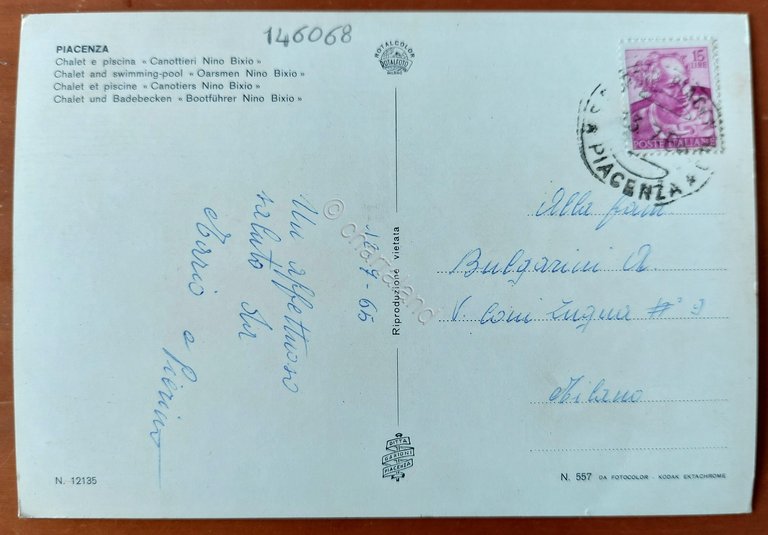 146068
PIACENZA
Chalet e piscina « Canottieri Nino Bixio »
Chalet and swimming-pool « Oarsmen Nino Bixio »
Chalet et piscine « Canotiers Nino Bixio »
Chalet und Badebecken « Bootführer Nino Bixio »
ROTALCOLOR
ROTALFOTO
MILANO
15
LIRE
POSTE ITALIANE
PIACENZA
Un affettuoso
saluto
Mario e Pierino
12-7-65
© chartaland
Riproduzione vietata
DITTA
PIACENZA
Alla fam.
Bulgarini A.
V. Coni Zugna
Milano
N. 12135
N. 557 DA FOTOCOLOR - KODAK EKTACHROME